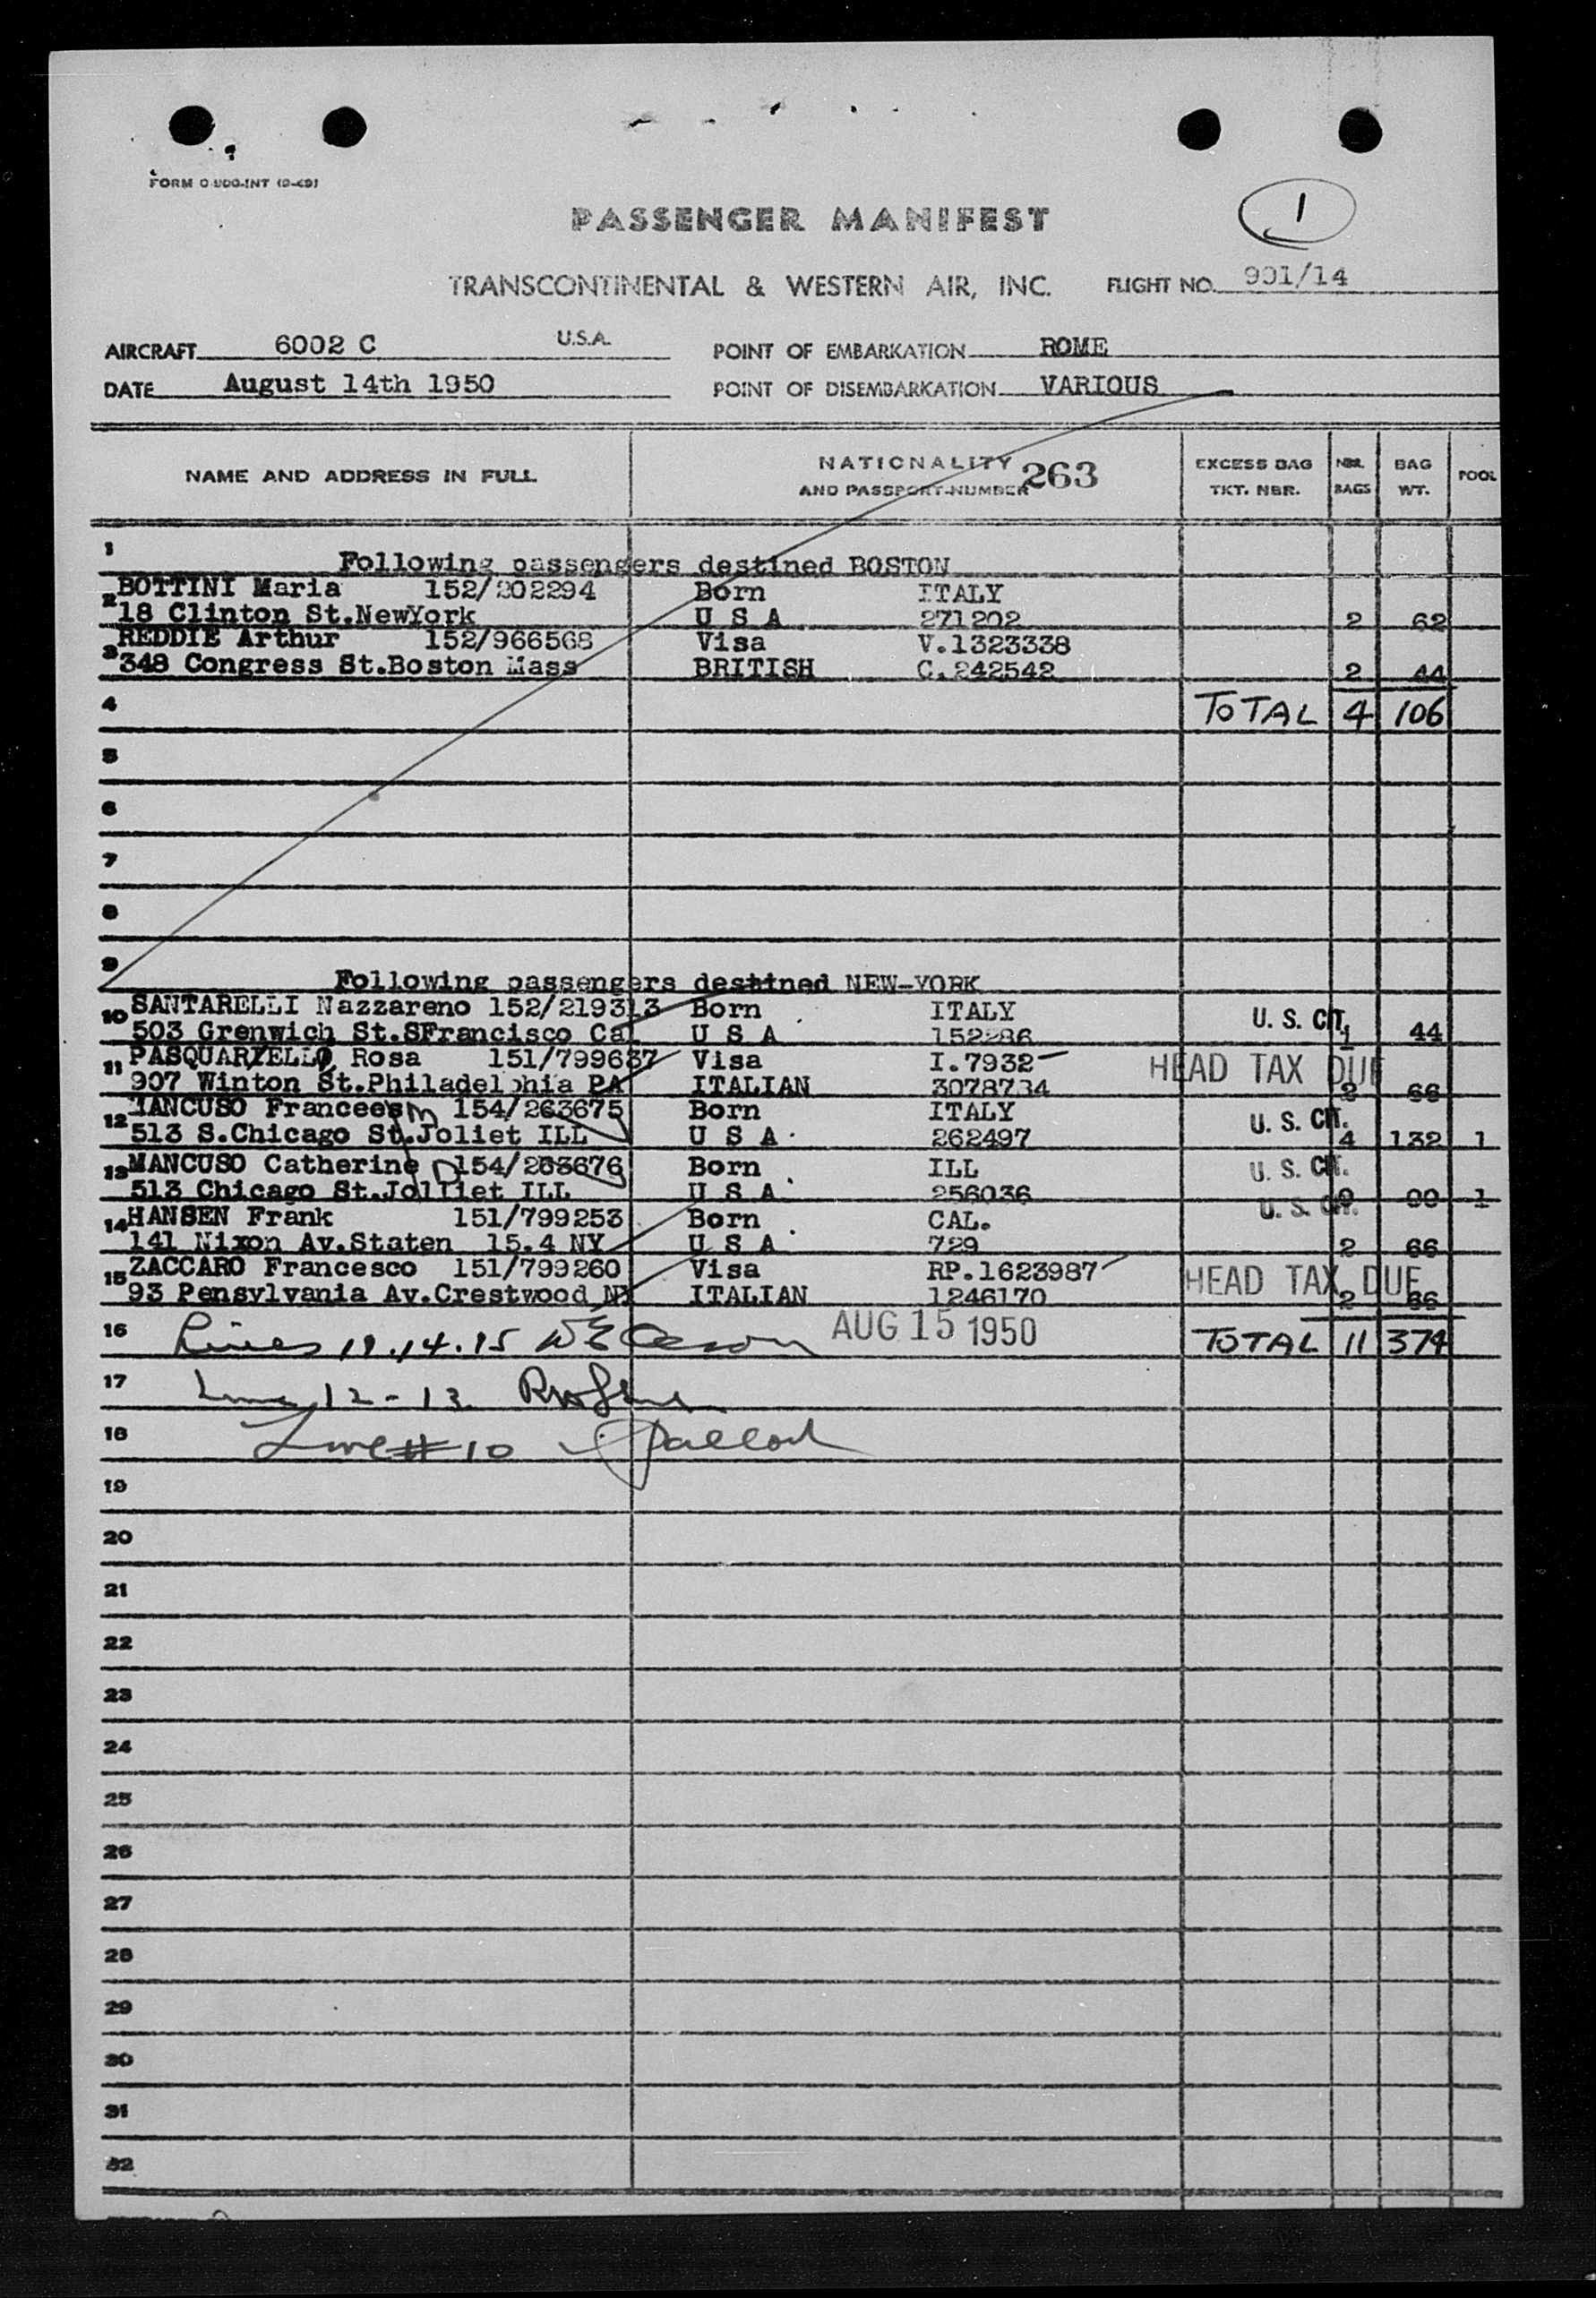 PASSENGER MANIFEST
1
TRANSCONTINENTAL & WESTERN AIR, INC. FLIGHT NO. 901/14
AIRCRAFT 6002 C U.S.A. POINT OF EMBARKATION ROME
DATE August 14th 1950 POINT OF DISEMBARKATION VARIOUS
NAME AND ADDRESS IN FULL NATIONALITY AND PASSPORT NUMBER 263 EXCESS BAG TKT. NBR. NBR. BAGS BAG WT. POOL
1 Following passengers destined BOSTON
2 BOTTINI Maria 152/202294 Born ITALY
18 Clinton St.NewYork U S A 271202 2 62
3 REDDIE Arthur 152/966568 Visa V.1323338
348 Congress St.Boston Mass BRITISH C.242542 2 44
4 TOTAL 4 106
5
6
7
8
9 Following passengers destined NEW-YORK
10 SANTARELLI Nazzareno 152/219313 Born ITALY
503 Grenwich St.SFrancisco Cal U S A 152286 U. S. CIT. 1 44
11 PASQUARIELLO Rosa 151/799637 Visa I.7932
907 Winton St.Philadelphia PA ITALIAN 3078734 HEAD TAX DUE 2 66
12 MANCUSO 154/263675 Born ITALY
513 S.Chicago St.Joliet ILL U S A 262497 U. S. CIT. 4 132 1
13 MANCUSO Catherine 154/263676 Born ILL U. S. CIT.
513 Chicago St.Jolliet ILL U S A 256036 0 00 1
14 HANSEN Frank 151/799253 Born CAL. U. S. CIT.
141 Nixon Av.Staten 15.4 NY U S A 729 2 66
15 ZACCARO Francesco 151/799260 Visa RP.1623987
93 Pensylvania Av.Crestwood NY ITALIAN 1246170 HEAD TAX DUE 2 66
16 Lines 14.15 AUG 15 1950 TOTAL 11 374
17 Line 12-13
18 Line #10
19
20
21
22
23
24
25
26
27
28
29
30
31
32